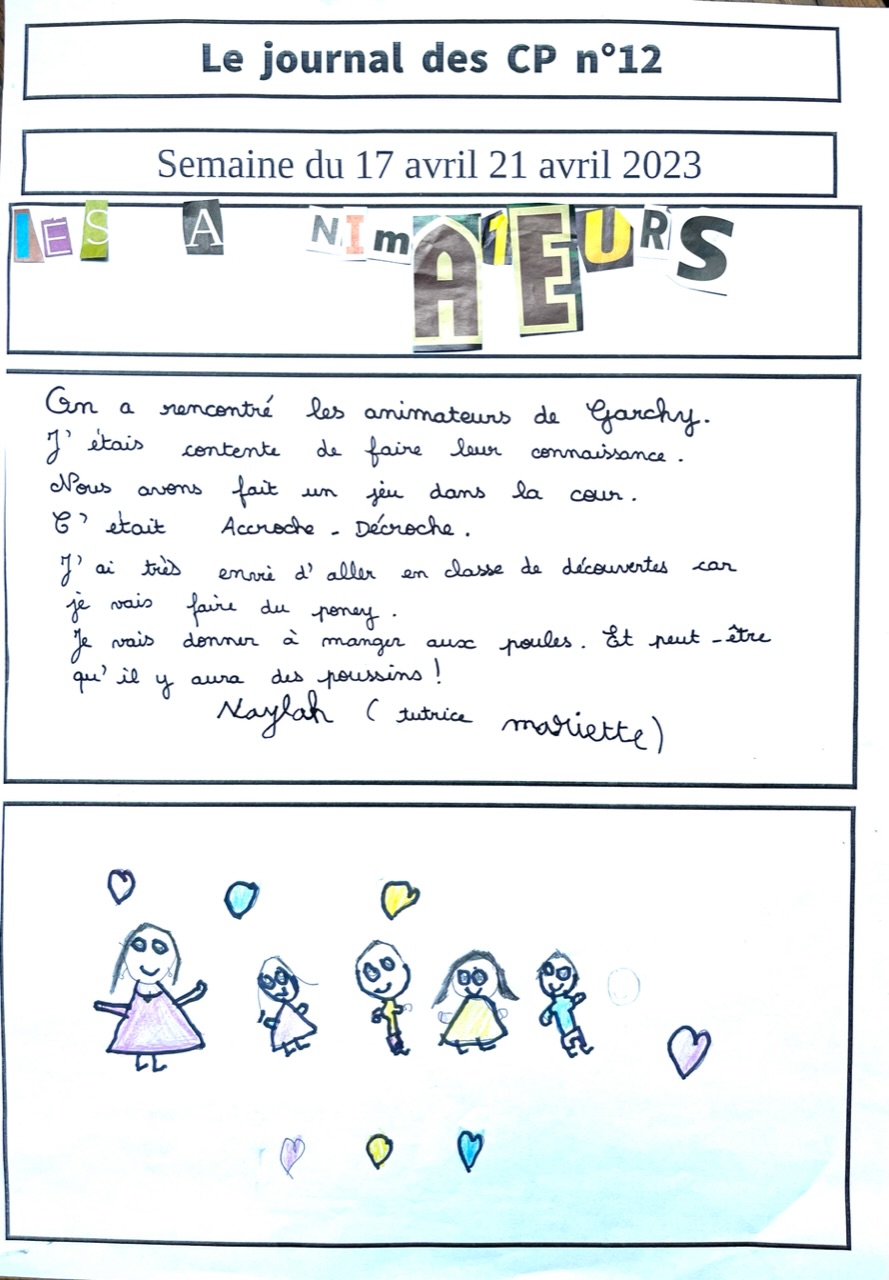 Le journal des CP n°12
Semaine du 17 avril 21 avril 2023
lES A NImATEURS
On a rencontré les animateurs de Garchy.
J'étais contente de faire leur connaissance.
Nous avons fait un jeu dans la cour.
C'était Accroche - Décroche.
J'ai très envie d'aller en classe de découvertes car
je vais faire du poney.
Je vais donner à manger aux poules. Et peut-être
qu'il y aura des poussins !
Naylah ( tutrice mariette)